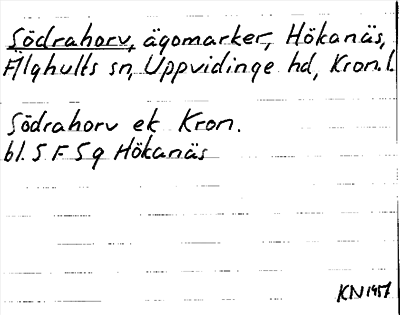 Södrahorv, ägomarker, Hökanäs,
Älghults sn, Uppvidinge hd, Kron.l.
Södrahorv ek Kron.
bl. 5 F 5g Hökanäs
KN 1957